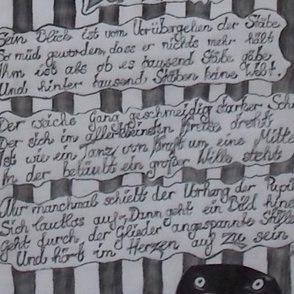 Sein Blick ist vom Vorübergehen der Stäbe
So müd geworden, dass er nichts mehr hält
Ihm ist als ob es tausend Stäbe gäbe
Und hinter tausend Stäben keine Welt.
Der weiche Gang geschmeidig starker Sch
Der sich im allerkleinsten Kreise dreht
Ist wie ein Tanz von Kraft um eine Mitte
In der betäubt ein großer Wille steht
Nur manchmal schiebt der Vorhang der Pupil
Sich lautlos auf. Dann geht ein Bild hine
geht durch der Glieder angespannte Stille
Und hört im Herzen auf zu sein